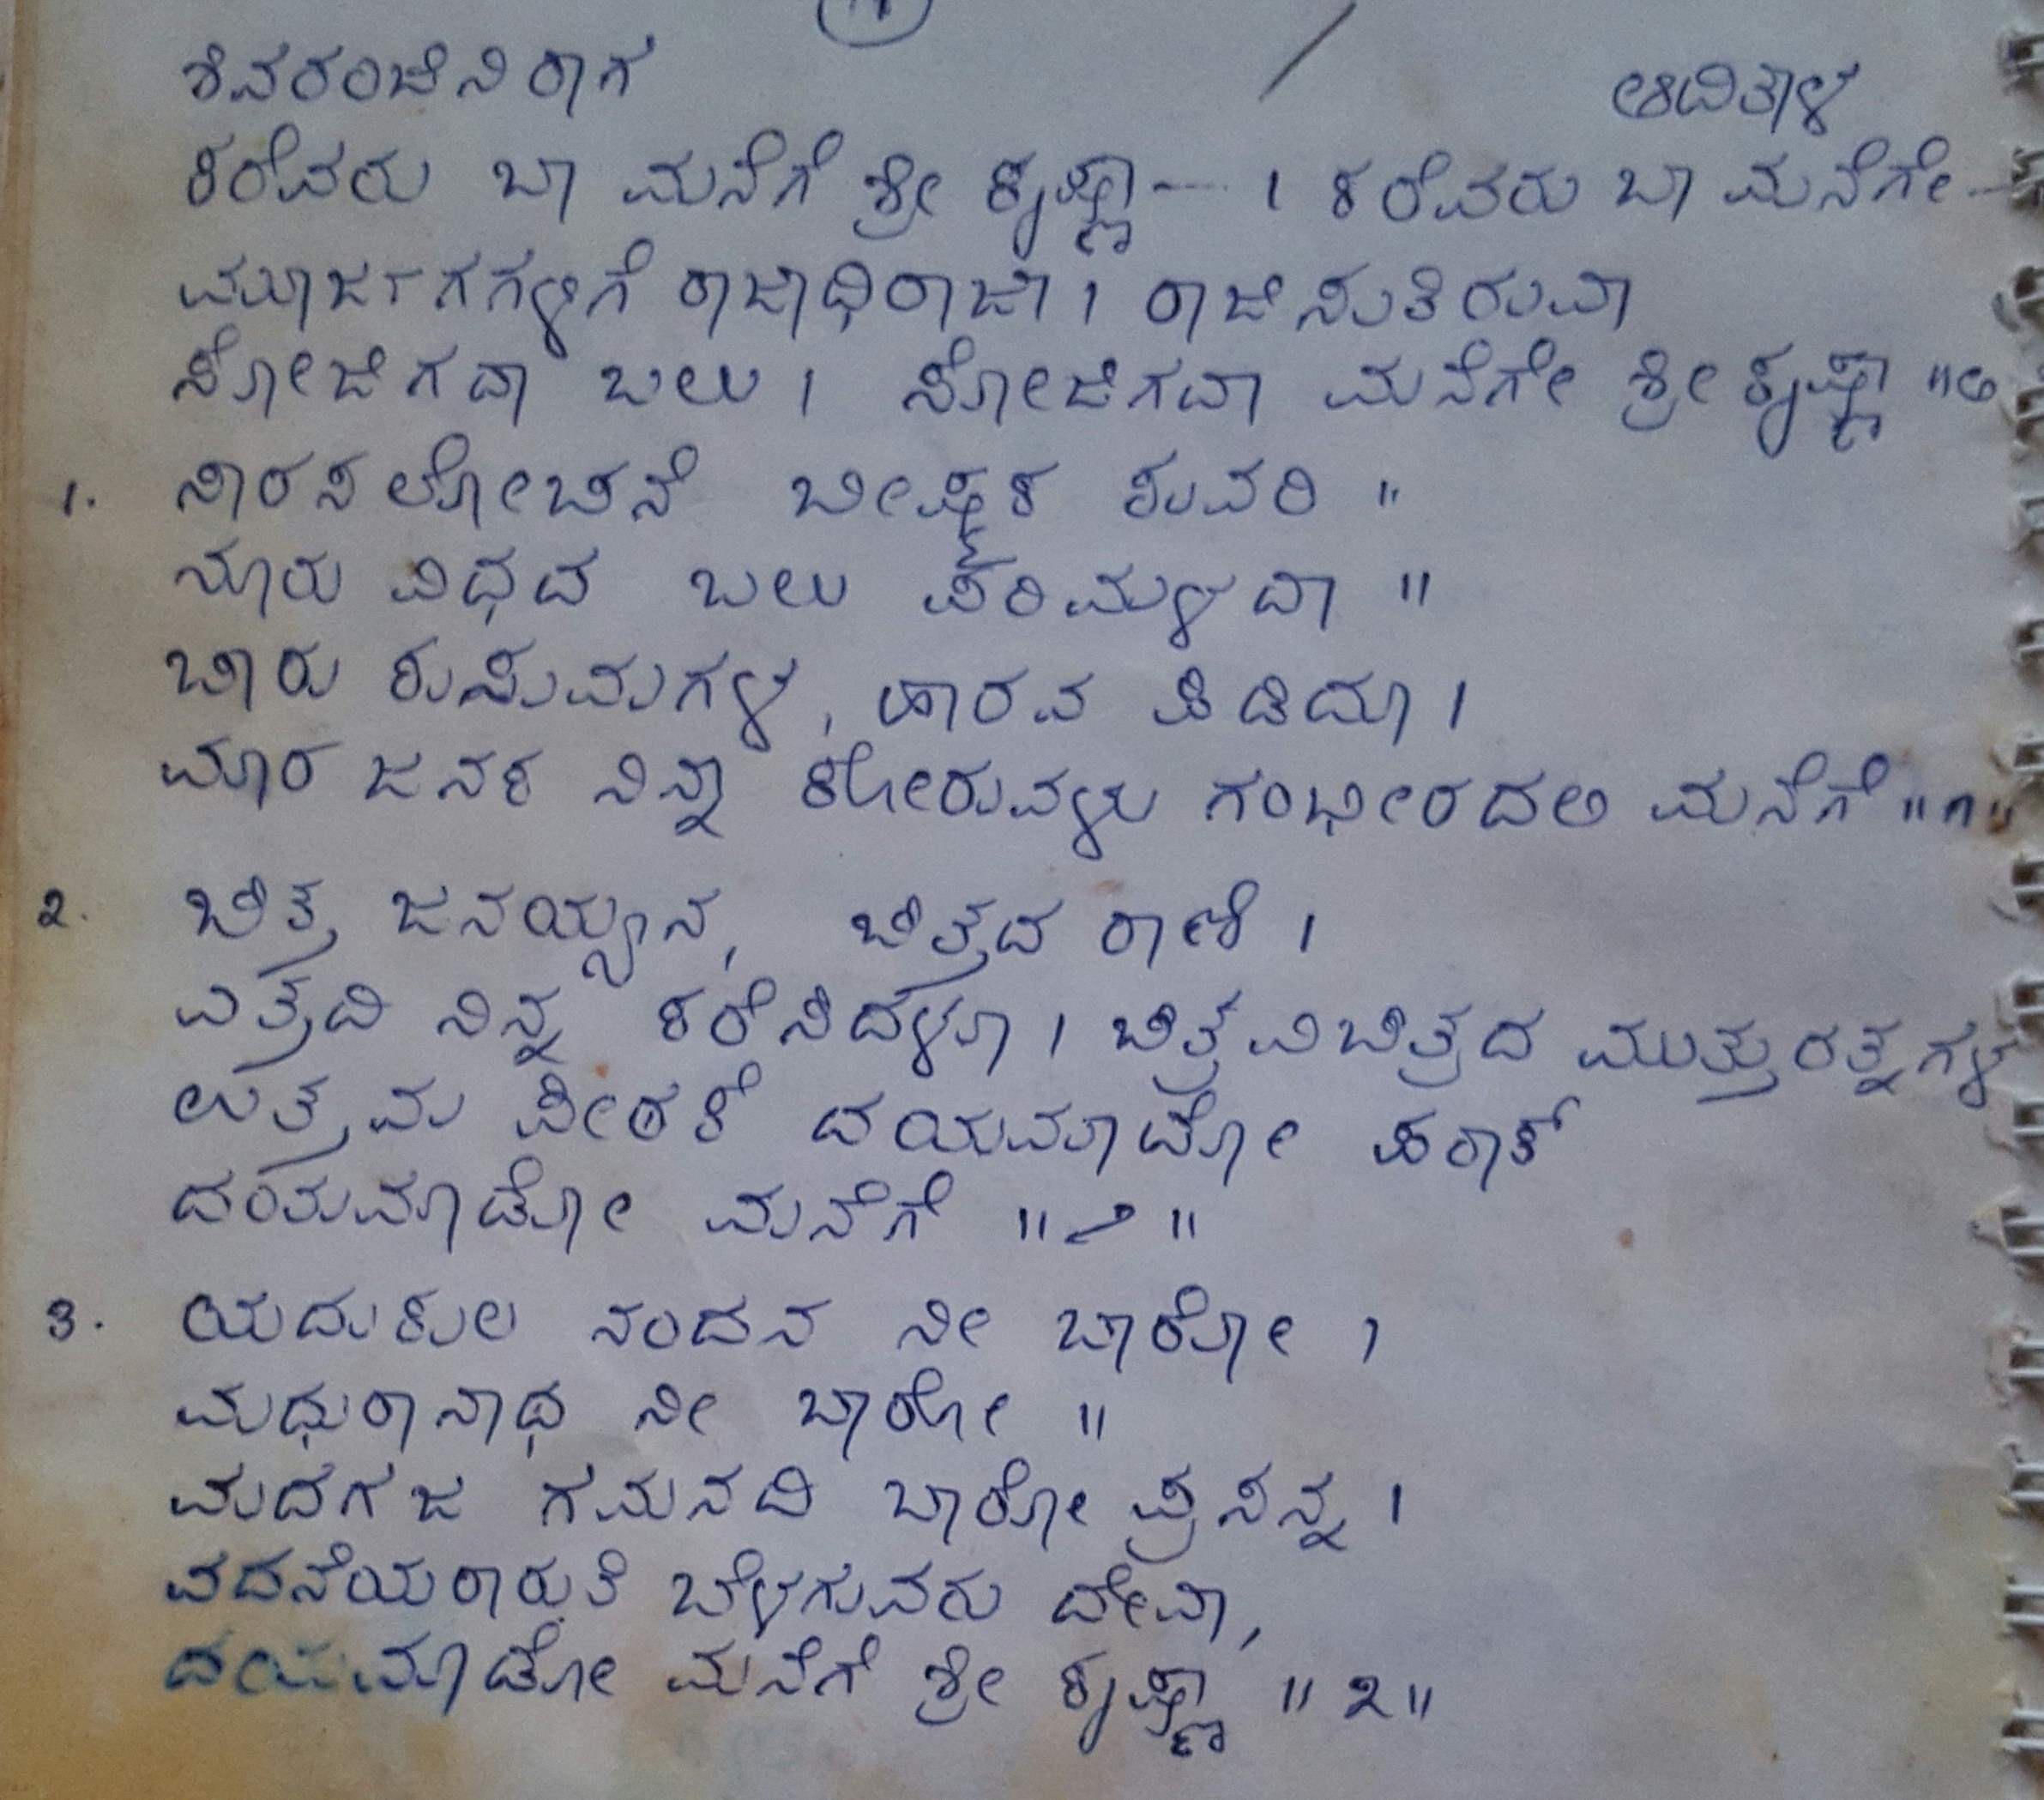 ಶಿವರಂಜಿನಿ ರಾಗ ಆದಿತಾಳ
ಕರೆವರು ಬಾ ಮನೆಗೆ ಶ್ರೀ ಕೃಷ್ಣಾ--- । ಕರೆವರು ಬಾ ಮನೆಗೇ -
ಮೂರ್ಜಗಗಳಿಗೆ ರಾಜಾಧಿರಾಜಾ । ರಾಜಿಸುತಿರುವಾ
ಸೋಜಿಗದಾ ಬಲು । ಸೋಜಿಗದಾ ಮನೆಗೇ ಶ್ರೀ ಕೃಷ್ಣಾ ॥ಅ
1. ಸಾರಸ ಲೋಚನೆ ಬೀಷ್ಮಕ ಕುವರಿ ॥
ನೂರು ವಿಧದ ಬಲು ಪರಿಮಳದಾ ॥
ಚಾರು ಕುಸುಮಗಳ, ಹಾರವ ಹಿಡಿದೂ ।
ಮಾರ ಜನಕ ನಿನ್ನಾ ಕೋರುವಳು ಗಂಭೀರದಲಿ ಮನೆಗೆ ॥೧॥
2. ಚಿತ್ತ ಜನಯ್ಯಾನ, ಚಿತ್ತದ ರಾಣಿ ।
ಎತ್ತದಿ ನಿನ್ನ ಕರೆಸಿದಳೂ । ಚಿತ್ರವಿಚಿತ್ರದ ಮುತ್ತುರತ್ನಗಳ
ಉತ್ತಮ ಪೀಠಕೆ ದಯಮಾಡೋ ಹರಾಕ್
ದಯಮಾಡೋ ಮನೆಗೆ ॥೨॥
3. ಯದುಕುಲ ನಂದನ ನೀ ಬಾರೋ ।
ಮಧುರಾನಾಥ ನೀ ಬಾರೋ ॥
ಮದಗಜ ಗಮನದಿ ಬಾರೋ ಪ್ರಸನ್ನ ।
ವದನೆಯರಾರುತಿ ಬೆಳಗುವರು ದೇವಾ,
ದಯಮಾಡೋ ಮನೆಗೆ ಶ್ರೀ ಕೃಷ್ಣಾ ॥೩॥